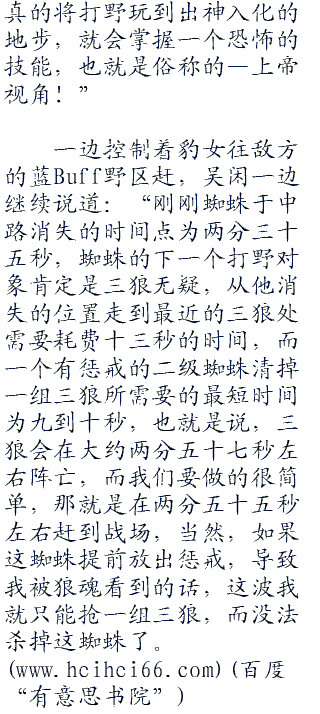 真的将打野玩到出神入化的
地步，就会掌握一个恐怖的
技能，也就是俗称的—上帝
视角！”
一边控制着豹女往敌方
的蓝Buff野区赶，吴闲一边
继续说道：“刚刚蜘蛛于中
路消失的时间点为两分三十
五秒，蜘蛛的下一个打野对
象肯定是三狼无疑，从他消
失的位置走到最近的三狼处
需要耗费十三秒的时间，而
一个有惩戒的二级蜘蛛清掉
一组三狼所需要的最短时间
为九到十秒，也就是说，三
狼会在大约两分五十七秒左
右阵亡，而我们要做的很简
单，那就是在两分五十五秒
左右赶到战场，当然，如果
这蜘蛛提前放出惩戒，导致
我被狼魂看到的话，这波我
就只能抢一组三狼，而没法
杀掉这蜘蛛了。
(www.hcihci66.com)(百度
“有意思书院”)